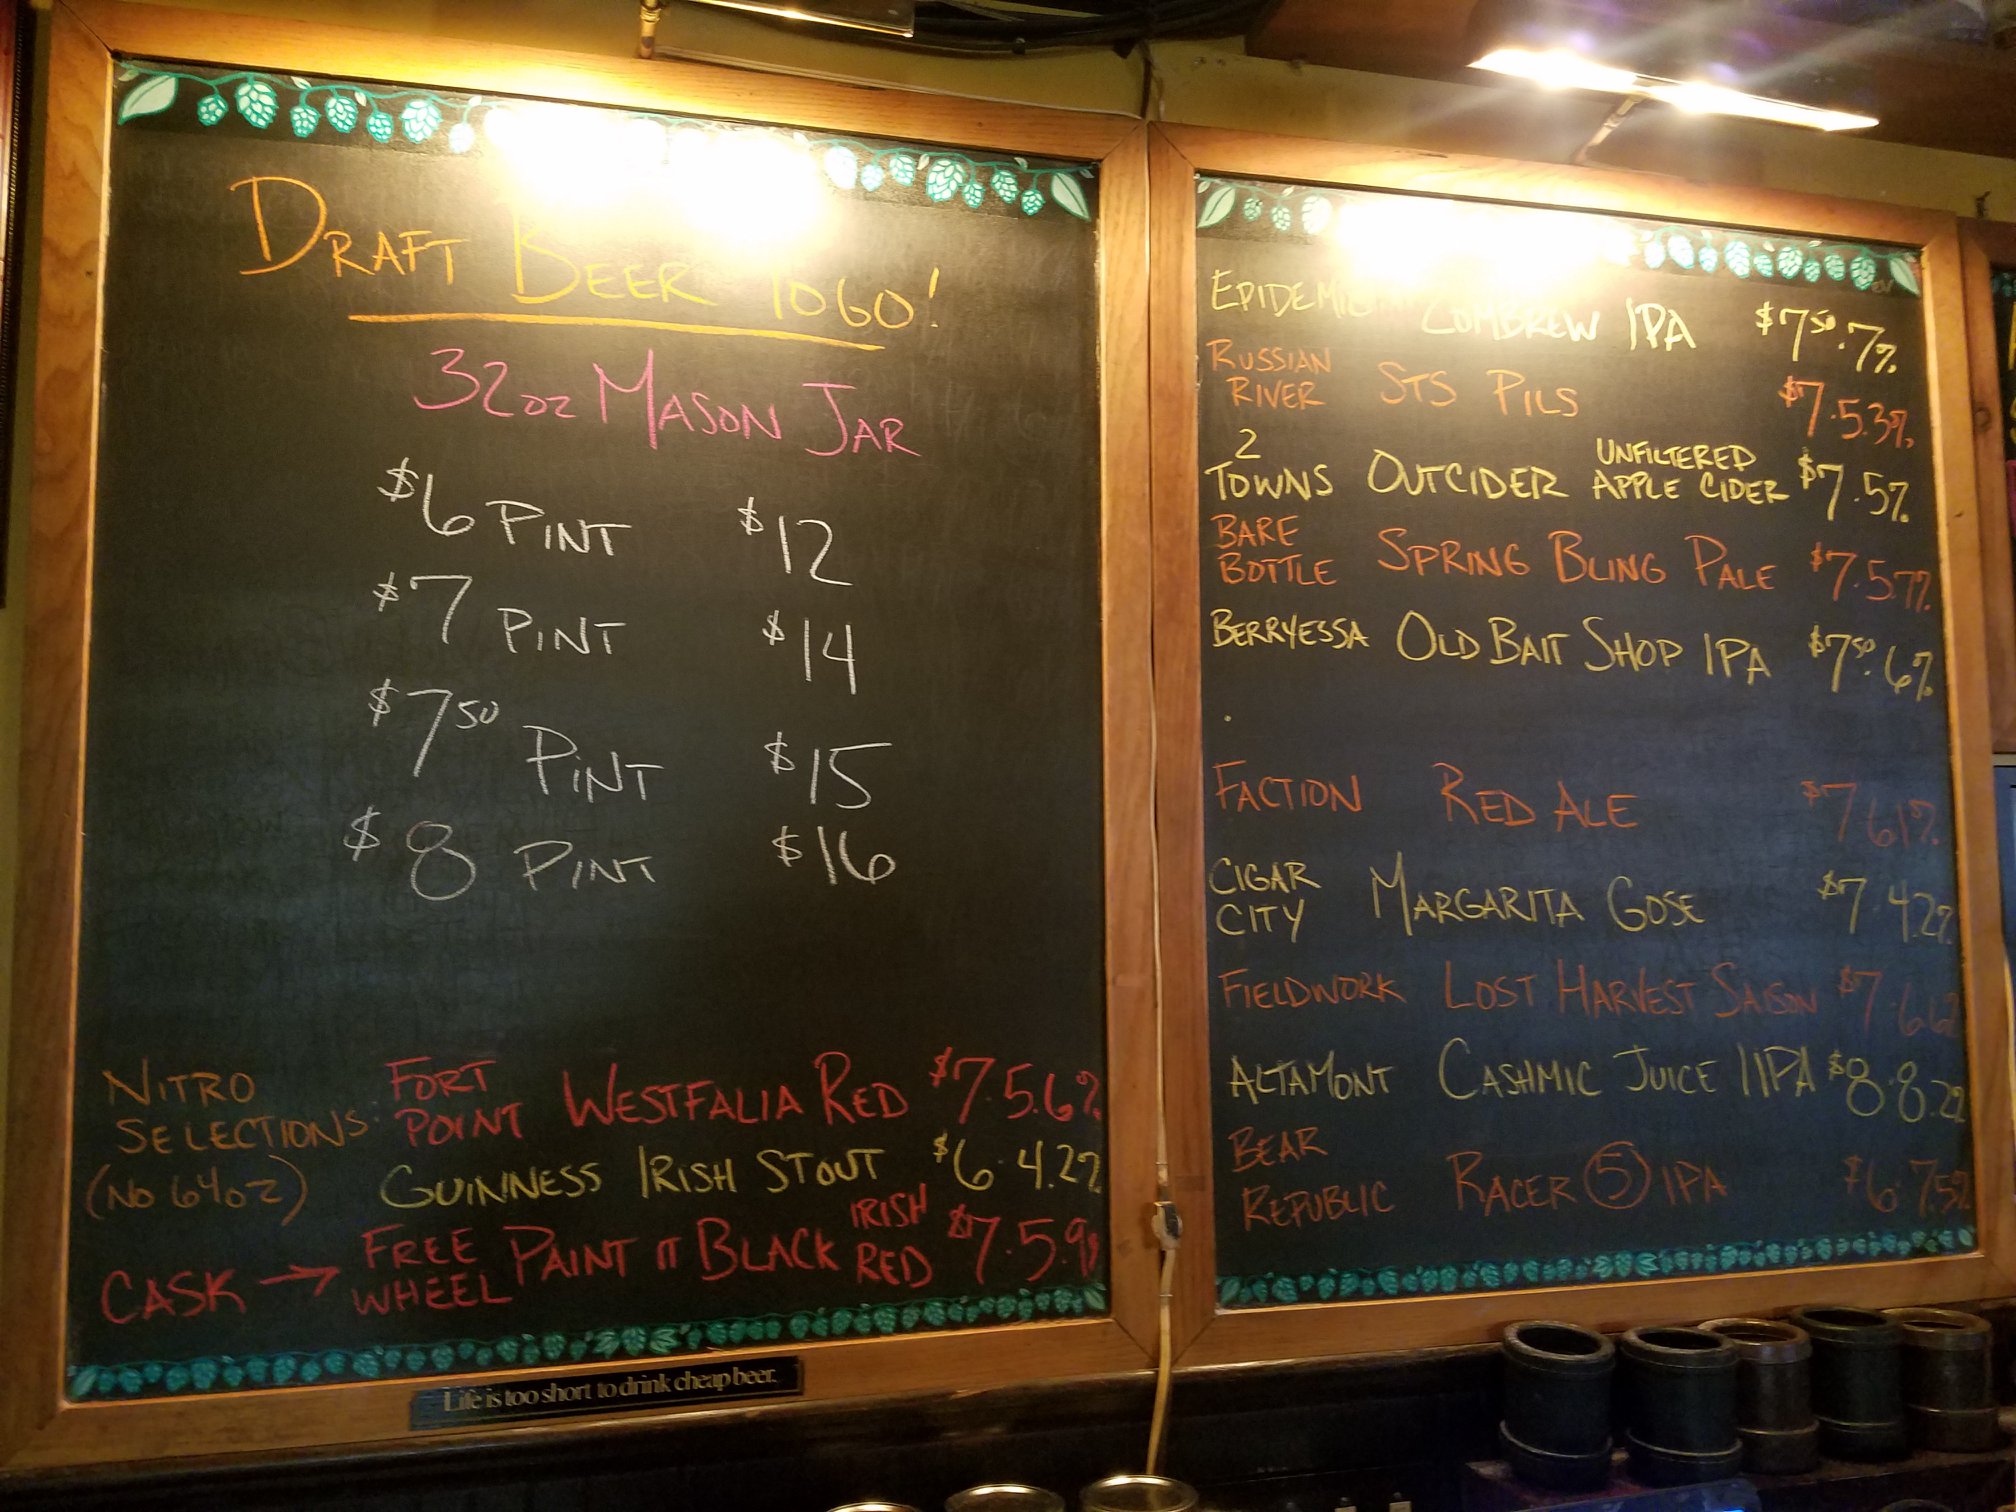 DRAFT BEER TOGO!
32oz MASON JAR
$6 PINT $12
$7 PINT $14
$7.50 PINT $15
$8 PINT $16
NITRO SELECTIONS. (NO 64oz)
FORT POINT WESTFALIA RED $7.5.6%
GUINNESS IRISH STOUT $6.4.2%
CASK → FREE WHEEL PAINT IT BLACK IRISH RED $7.5.9%
Life is too short to drink cheap beer.
EPIDEMIC LOMBREW IPA $7.50.7%
RUSSIAN RIVER STS PILS $7.5.3%
2 TOWNS OUTCIDER UNFILTERED APPLE CIDER $7.5%
BARE BOTTLE SPRING BLING PALE $7.5.7%
BERRYESSA OLD BAIT SHOP IPA $7.50.6%
FACTION RED ALE $7 6.1%
CIGAR CITY MARGARITA GOSE $7.4.2%
FIELDWORK LOST HARVEST SAISON $7.6.6%
ALTAMONT CASHMIC JUICE IIPA $8.8.2%
BEAR REPUBLIC RACER 5 IPA $6.7.5%